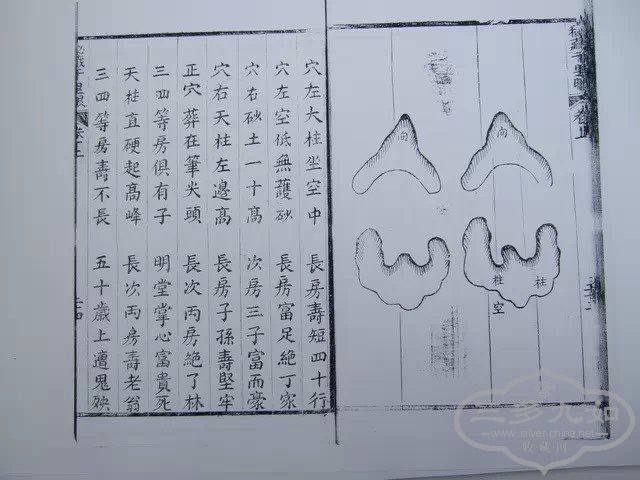 千里眼 卷上
向
向
柱
柱
空
穴左大柱坐空中 長房壽短四十行
穴左空低無護砂 長房富足絶丁家
穴右砂土一十髙 次房三子富而豪
穴右天柱左邊髙 長房子孫壽堅牢
正穴葬在筆尖頭 長次丙房絶了林
三四等房俱有子 明堂掌心富貴死
天柱直硬起髙峰 長次丙房壽老翁
三四等房壽不長 五十歲上遭鬼殃
www.silver-china.net
收藏刊